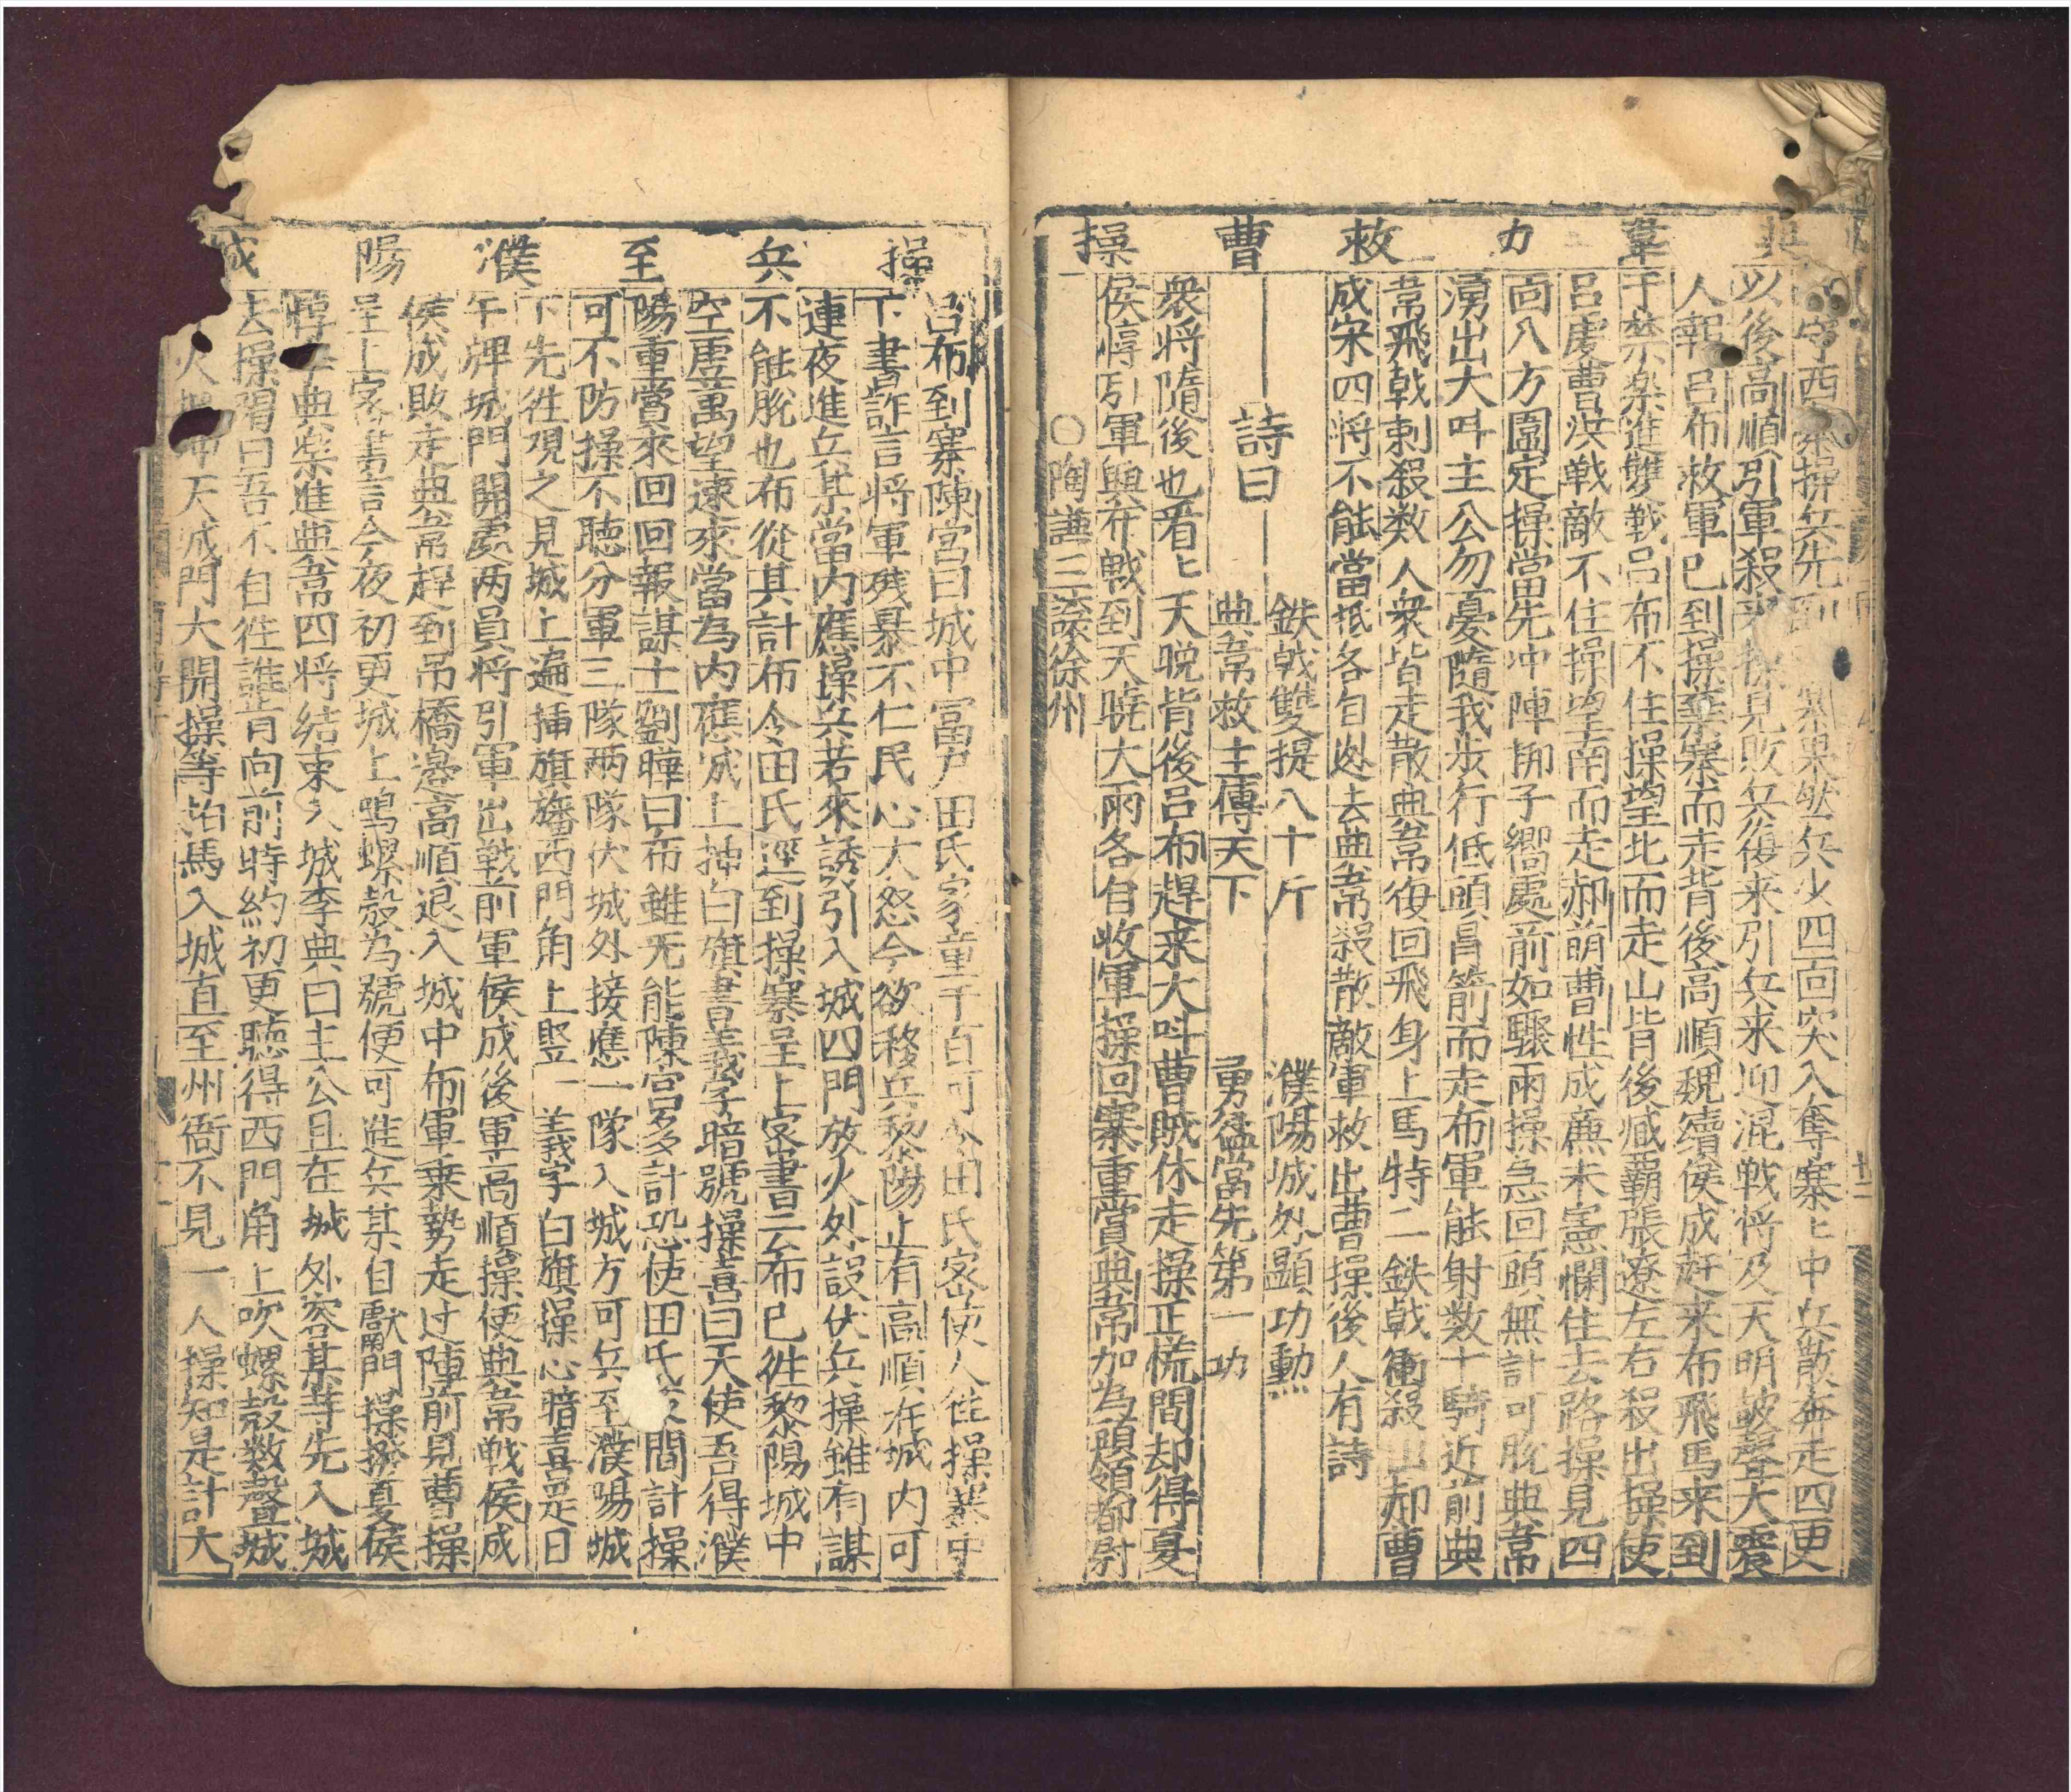 典韋力救曹操
守西寨操兵先到寨果然兵少四面突入奪寨〻中兵散奔走四更
以後高順引軍殺来操見敗兵復来引兵来迎混戦将及天明皷聲大震
人報吕布救軍已到操棄寨而走背後高順魏續侯成赶来布飛馬来到
于禁楽進雙戦吕布不住操望北而走山背後臧覇張遼左右殺出操使
吕虔曹洪戦敵不住操望南而走郝萌曹性成廉未憲攔住去路操見四
面八方圍定操當先冲陣梆子嚮處箭如驟雨操急回頭無計可脫典韋
湧出大呌主公勿憂隨我步行低頭冒箭而走布軍能射数十騎近前典
韋飛戟刺殺数人衆皆走散典韋復回飛身上馬特二鉄戟衝殺出郝曹
成宋四将不能當抵各自迯去典韋殺散敵軍救出曹操後人有詩
詩曰
鉄戟雙提八十斤　濮陽城外顯功勳
典韋救主傳天下　勇猛當先第一功
衆将隨後也看〻天晚背後吕布趕来大呌曹賊休走操正慌間却得夏
侯惇引軍與布戰到天晚大雨各自收軍操回寨重賞典韋加為領都尉
○陶謙三讓徐州
操兵至濮陽城
吕布到寨陳宮曰城中富户田氏家童千百可令田氏密使人往操寨中
下書詐言将軍残暴不仁民心大怒今欲移兵黎陽止有高順在城内可
連夜進兵某當内應操兵若來誘引入城四門放火外設伏兵操雖有謀
不能脫也布從其計布令田氏逕到操寨呈上密書云布已徃黎陽城中
空虚萬望速來當為内應城上挿白旗書義字暗號操喜曰天使吾得濮
陽重賞來回回報謀士劉曄曰布雖无能陳宮多計恐使田氏反間計操
可不防操不聽分軍三隊兩隊伏城外接應一隊入城方可兵至濮陽城
下先徃观之見城上遍挿旗旛西門角上竪一義字白旗操心暗喜是日
午牌城門開處两員将引軍出戦前軍侯成後軍高順操便典韋戦侯成
侯成敗走典韋趕到吊橋邊高順退入城中布軍乗勢走过陣前見曹操
呈上密書言今夜初更城上鳴螺殼為號便可進兵某自獻門操撥夏侯
惇李典楽進典韋四将結束入城李典曰主公且在城外容某等先入城
去操喝曰吾不自徃誰肯向前時約初更聽得西門角上吹螺殼数聲城
火把冲天城門大開操等拍馬入城直至州衙不見一人操知是計大